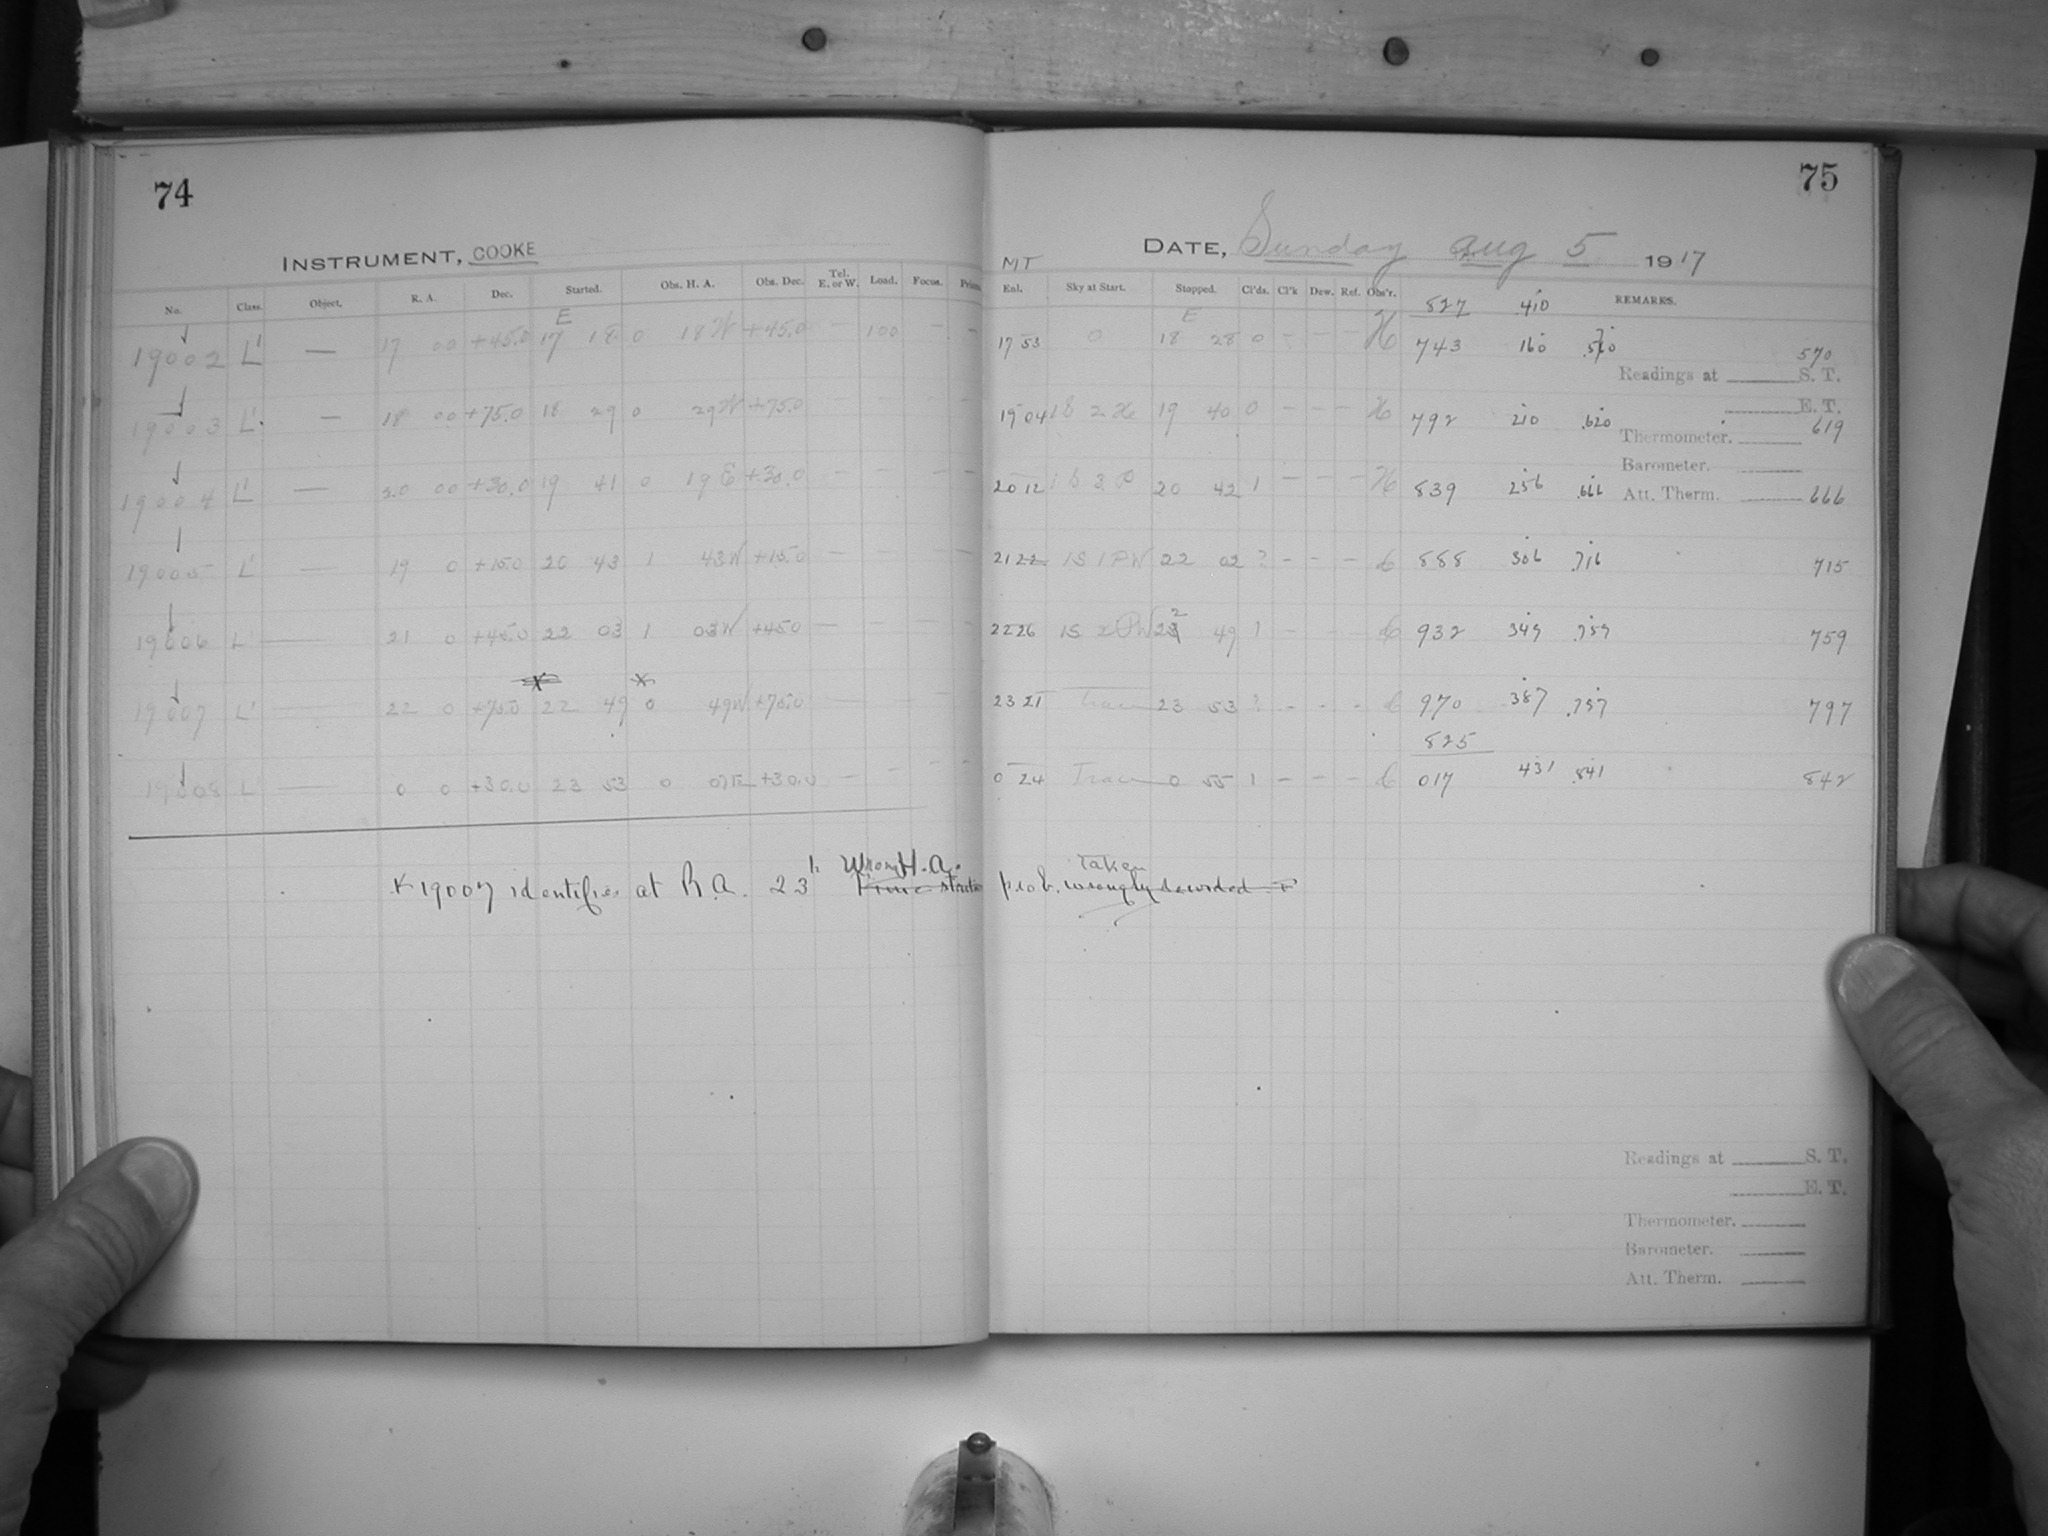 74
75
INSTRUMENT, COOKE
DATE, Sunday Aug 5 1917
MT
No. Class. Object. R. A. Dec. Started. Obs. H. A. Obs. Dec. Tel. E. or W. Load. Focus. Exl. Sky at Start. Stopped. Cl'ds. Cl'k Dew. Ref. Obs'r. 827 410 REMARKS.
E E
19002 L' — 17 00 +45.0 17 18 0 18 W +45.0 — 100 — — 17 53 0 18 28 0 - - - H 743 160 570
Readings at S. T.
E. T.
19003 L' — 18 00 +75.0 18 29 0 29 W +75.0 — — — — 19 04 19 40 0 - - - H 792 210 .620 619
Thermometer.
Barometer.
19004 L' — 20 00 +30.0 19 41 0 19 E +30.0 — — — — 20 12 20 42 1 - - - H 839 256 .666 Att. Therm. 666
19005 L' — 19 0 +15.0 20 43 1 43 W +15.0 — — — — 21 22 1S 1PW 22 02 ? - - - 888 306 .716 715
19006 L' — 21 0 +45.0 22 03 1 03 W +45.0 — — — — 22 26 1S 2PW 22 49 1 - - - 932 349 .759 759
19007 L' — 22 0 +75.0 22 49 0 49 W +75.0 — — — 23 21 23 53 ? - - - 970 387 .797 797
825
19008 L' — 0 0 +30.0 23 53 0 07 E +30.0 — — — — 0 24 0 55 1 - - - 017 431 .841 842
x 19007 identifies at R.A. 23h Wrong H.A. prob. taken
wrongly recorded
Readings at S. T.
E. T.
Thermometer.
Barometer.
Att. Therm.